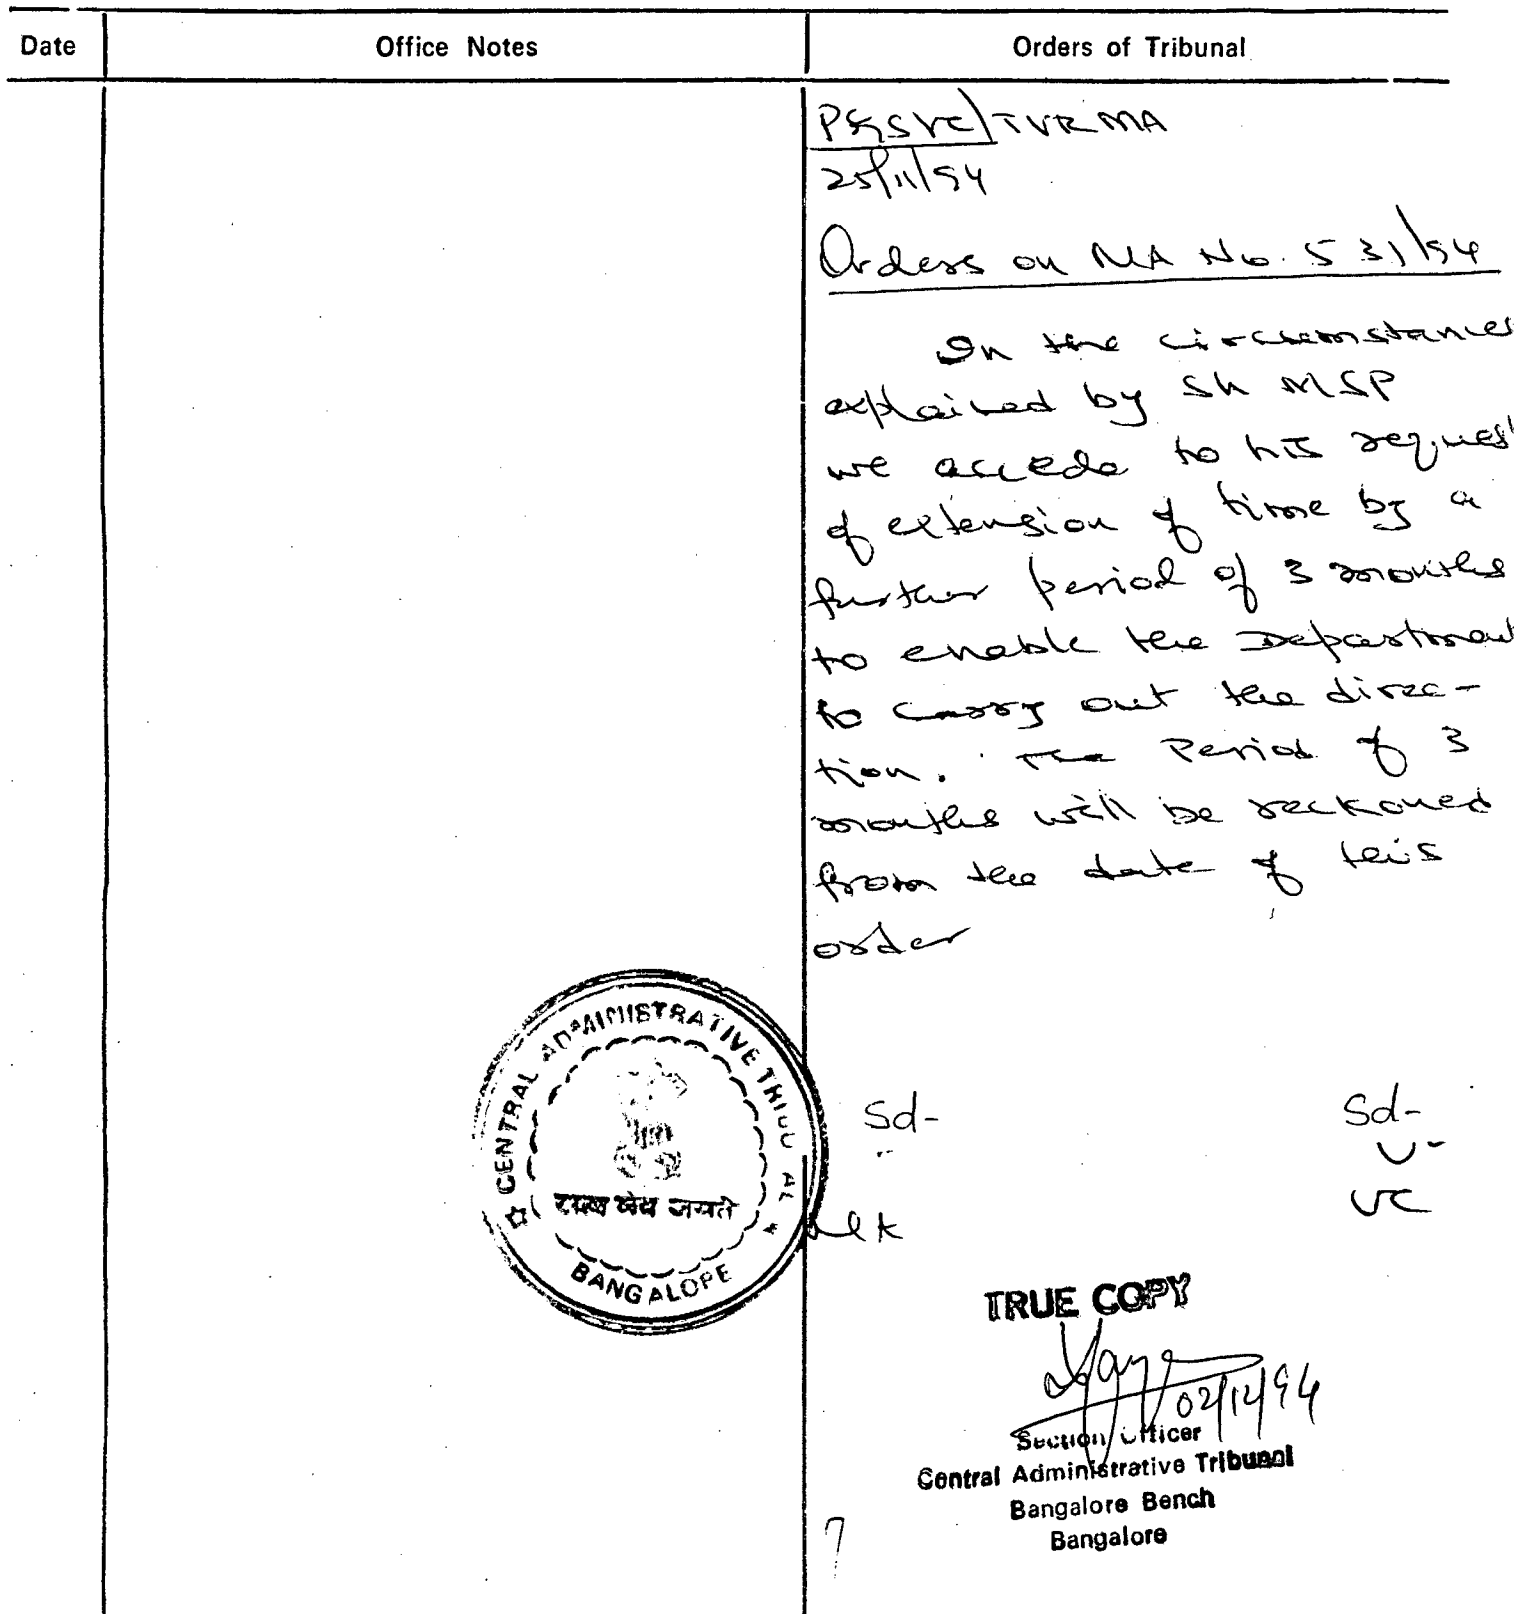 Date Office Notes Orders of Tribunal
PKSVC/TVRMA
25/11/94
Orders on MA No. 531/94
In the circumstances
explained by Sh MSP
we accede to his request
of extension of time by a
further period of 3 months
to enable the Department
to carry out the direc-
tion. The Period of 3
months will be reckoned
from the date of this
order
CENTRAL ADMINISTRATIVE TRIBUNAL
सत्यमेव जयते
BANGALORE
Sd- Sd-
VC
TRUE COPY
02/12/94
Section Officer
Central Administrative Tribunal
Bangalore Bench
Bangalore